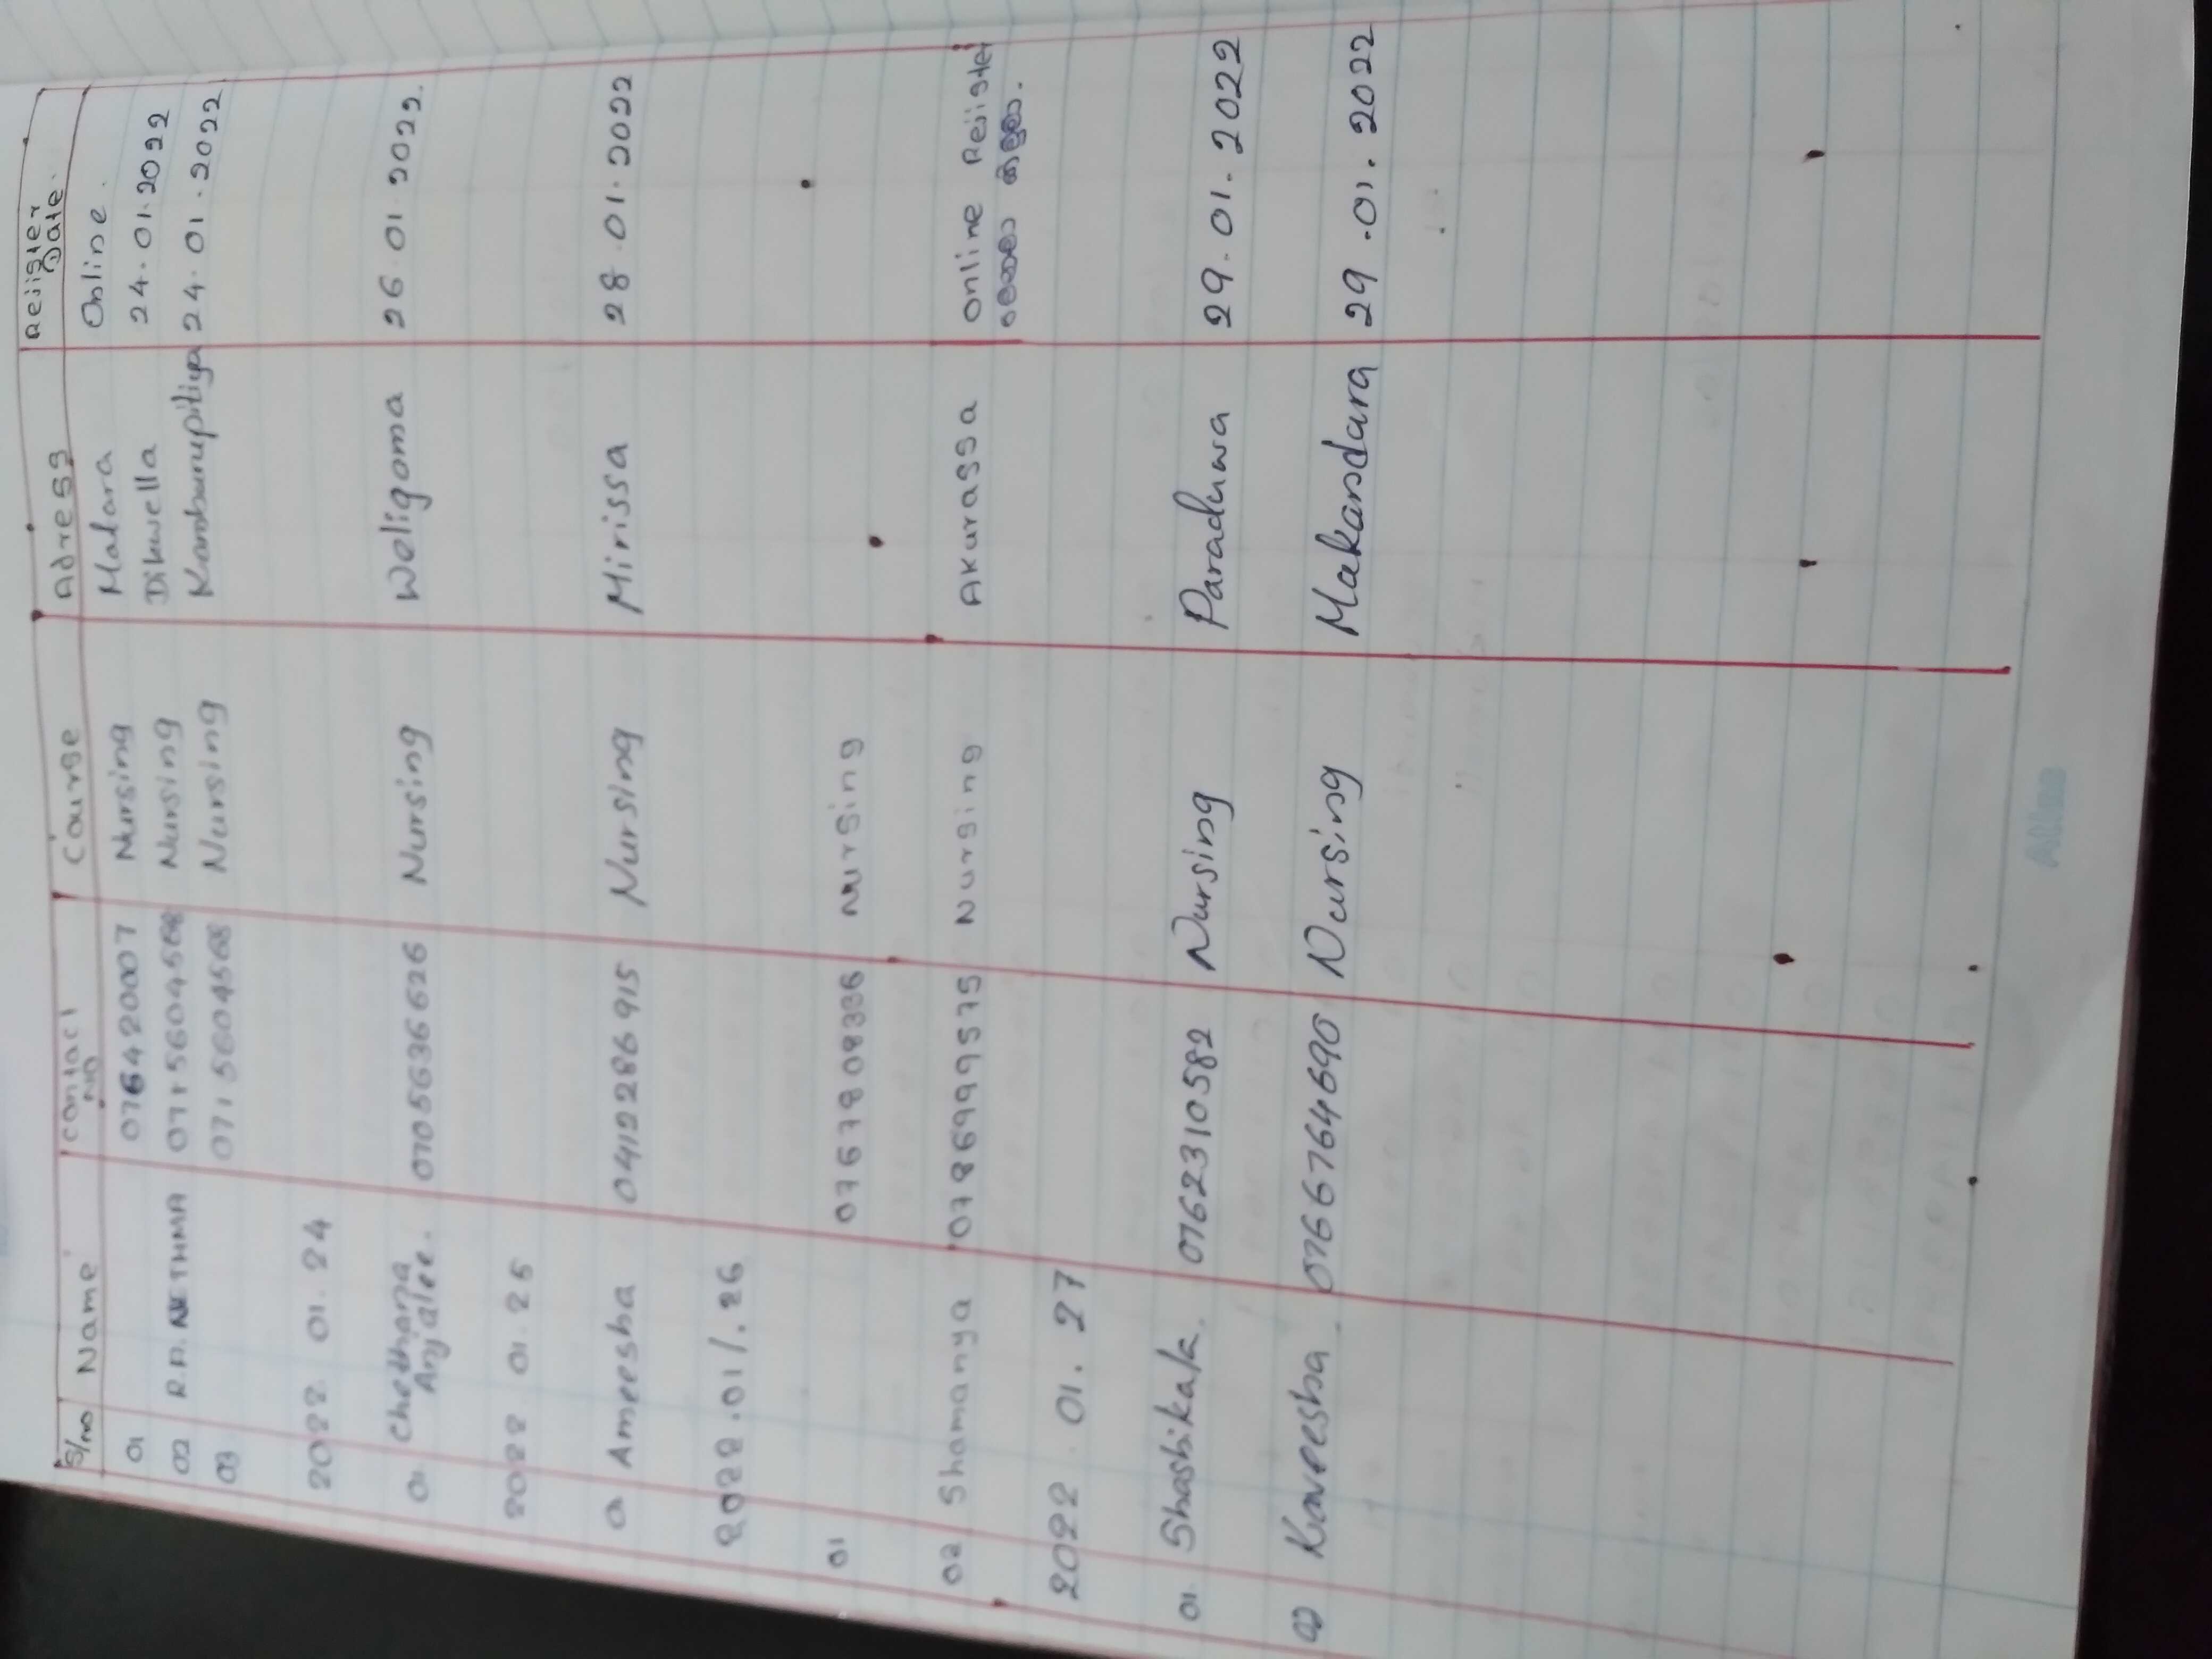 S/no Name contact no Course Adress Reiister Date.
01 0764220007 Nursing Matara Online.
02 R.D. NETHMA 0715604568 Nursing Dikwella 24.01.2022
03 0715604568 Nursing Kamburupitiya 24.01.2022
2022. 01. 24
01 Chethana Anjalee. 0705636626 Nursing Weligama 26.01.2022.
2022 01.25
01 Ameesha 0412286915 Nursing Mirissa 28.01.2022
2022.01/.26
01 0767808336 Nursing
02 Shamanya 0786999575 Nursing Akurassa Online Reiister
2022.01.27
01 Shashikala. 0762310582 Nursing Paraduwa 29.01.2022
02 Kaveesha 0766764690 Nursing Makandara 29.01.2022
Atlas